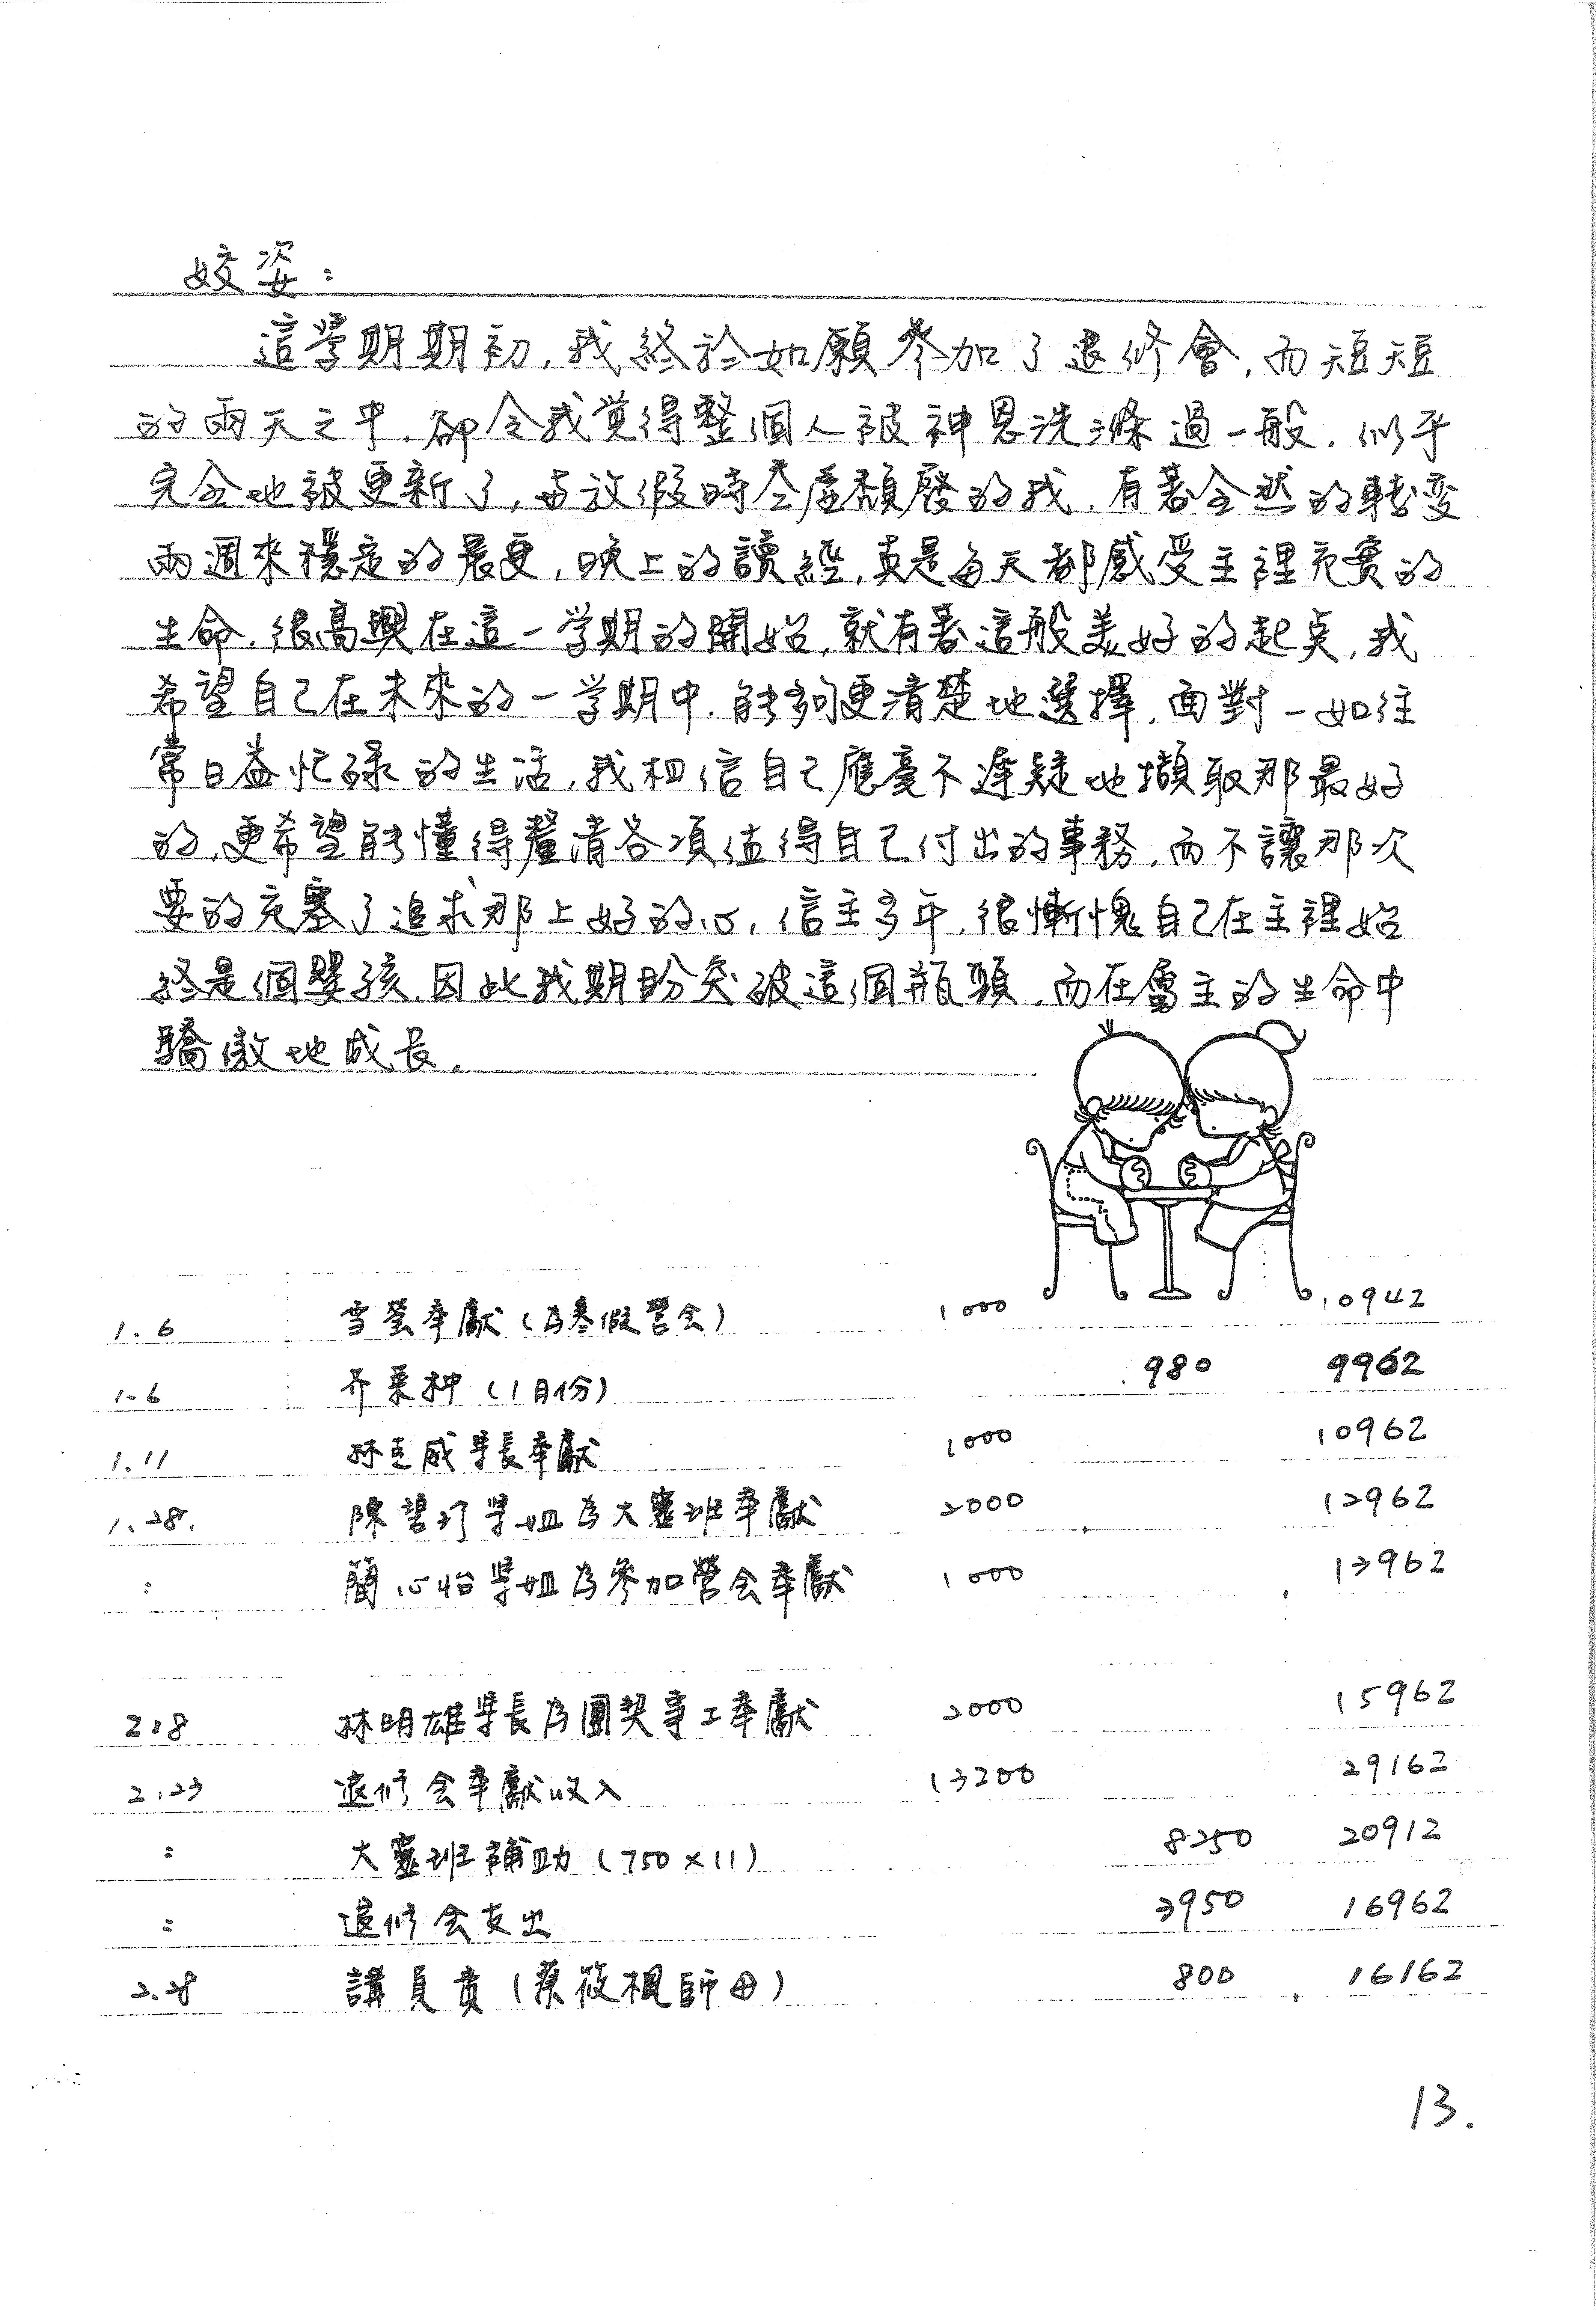 姣姿：
這學期期初，我終於如願參加了退修會，而短短
的兩天之中，卻令我覚得整個人被神恩洗滌過一般，似乎
完全地被更新了，与放假時空虛頹廢的我，有著全然的轉变
兩週來穩定的晨更，晚上的讀經，真是每天都感受主裡充實的
生命，很高興在這一学期的開始，就有著這般美好的起点，我
希望自己在未來的一学期中，能夠更清楚地選擇，面對一如往
常日益忙碌的生活，我相信自己應毫不遲疑地擷取那最好
的，更希望能懂得釐清各項值得自己付出的事務，而不讓那次
要的充塞了追求那上好的心，信主多年，很慚愧自己在主裡始
終是個嬰孩，因此我期盼突破這個瓶頸，而在屬主的生命中
驕傲地成長。
1.6 雪瑩奉獻（為寒假营会） 1000 10942
1.6 芥菜种（1月份） 980 9962
1.11 林克威學長奉獻 1000 10962
1.28. 陳碧玲學姐為大靈班奉獻 2000 12962
: 簡心怡學姐為參加營会奉獻 1000 13962
2.8 林明雄學長為團契事工奉獻 2000 15962
2.23 退修会奉獻收入 13200 29162
: 大靈班補助（750×11） 8250 20912
: 退修会支出 3950 16962
2.28 講員費（蔡筱楓師母） 800 16162
13.